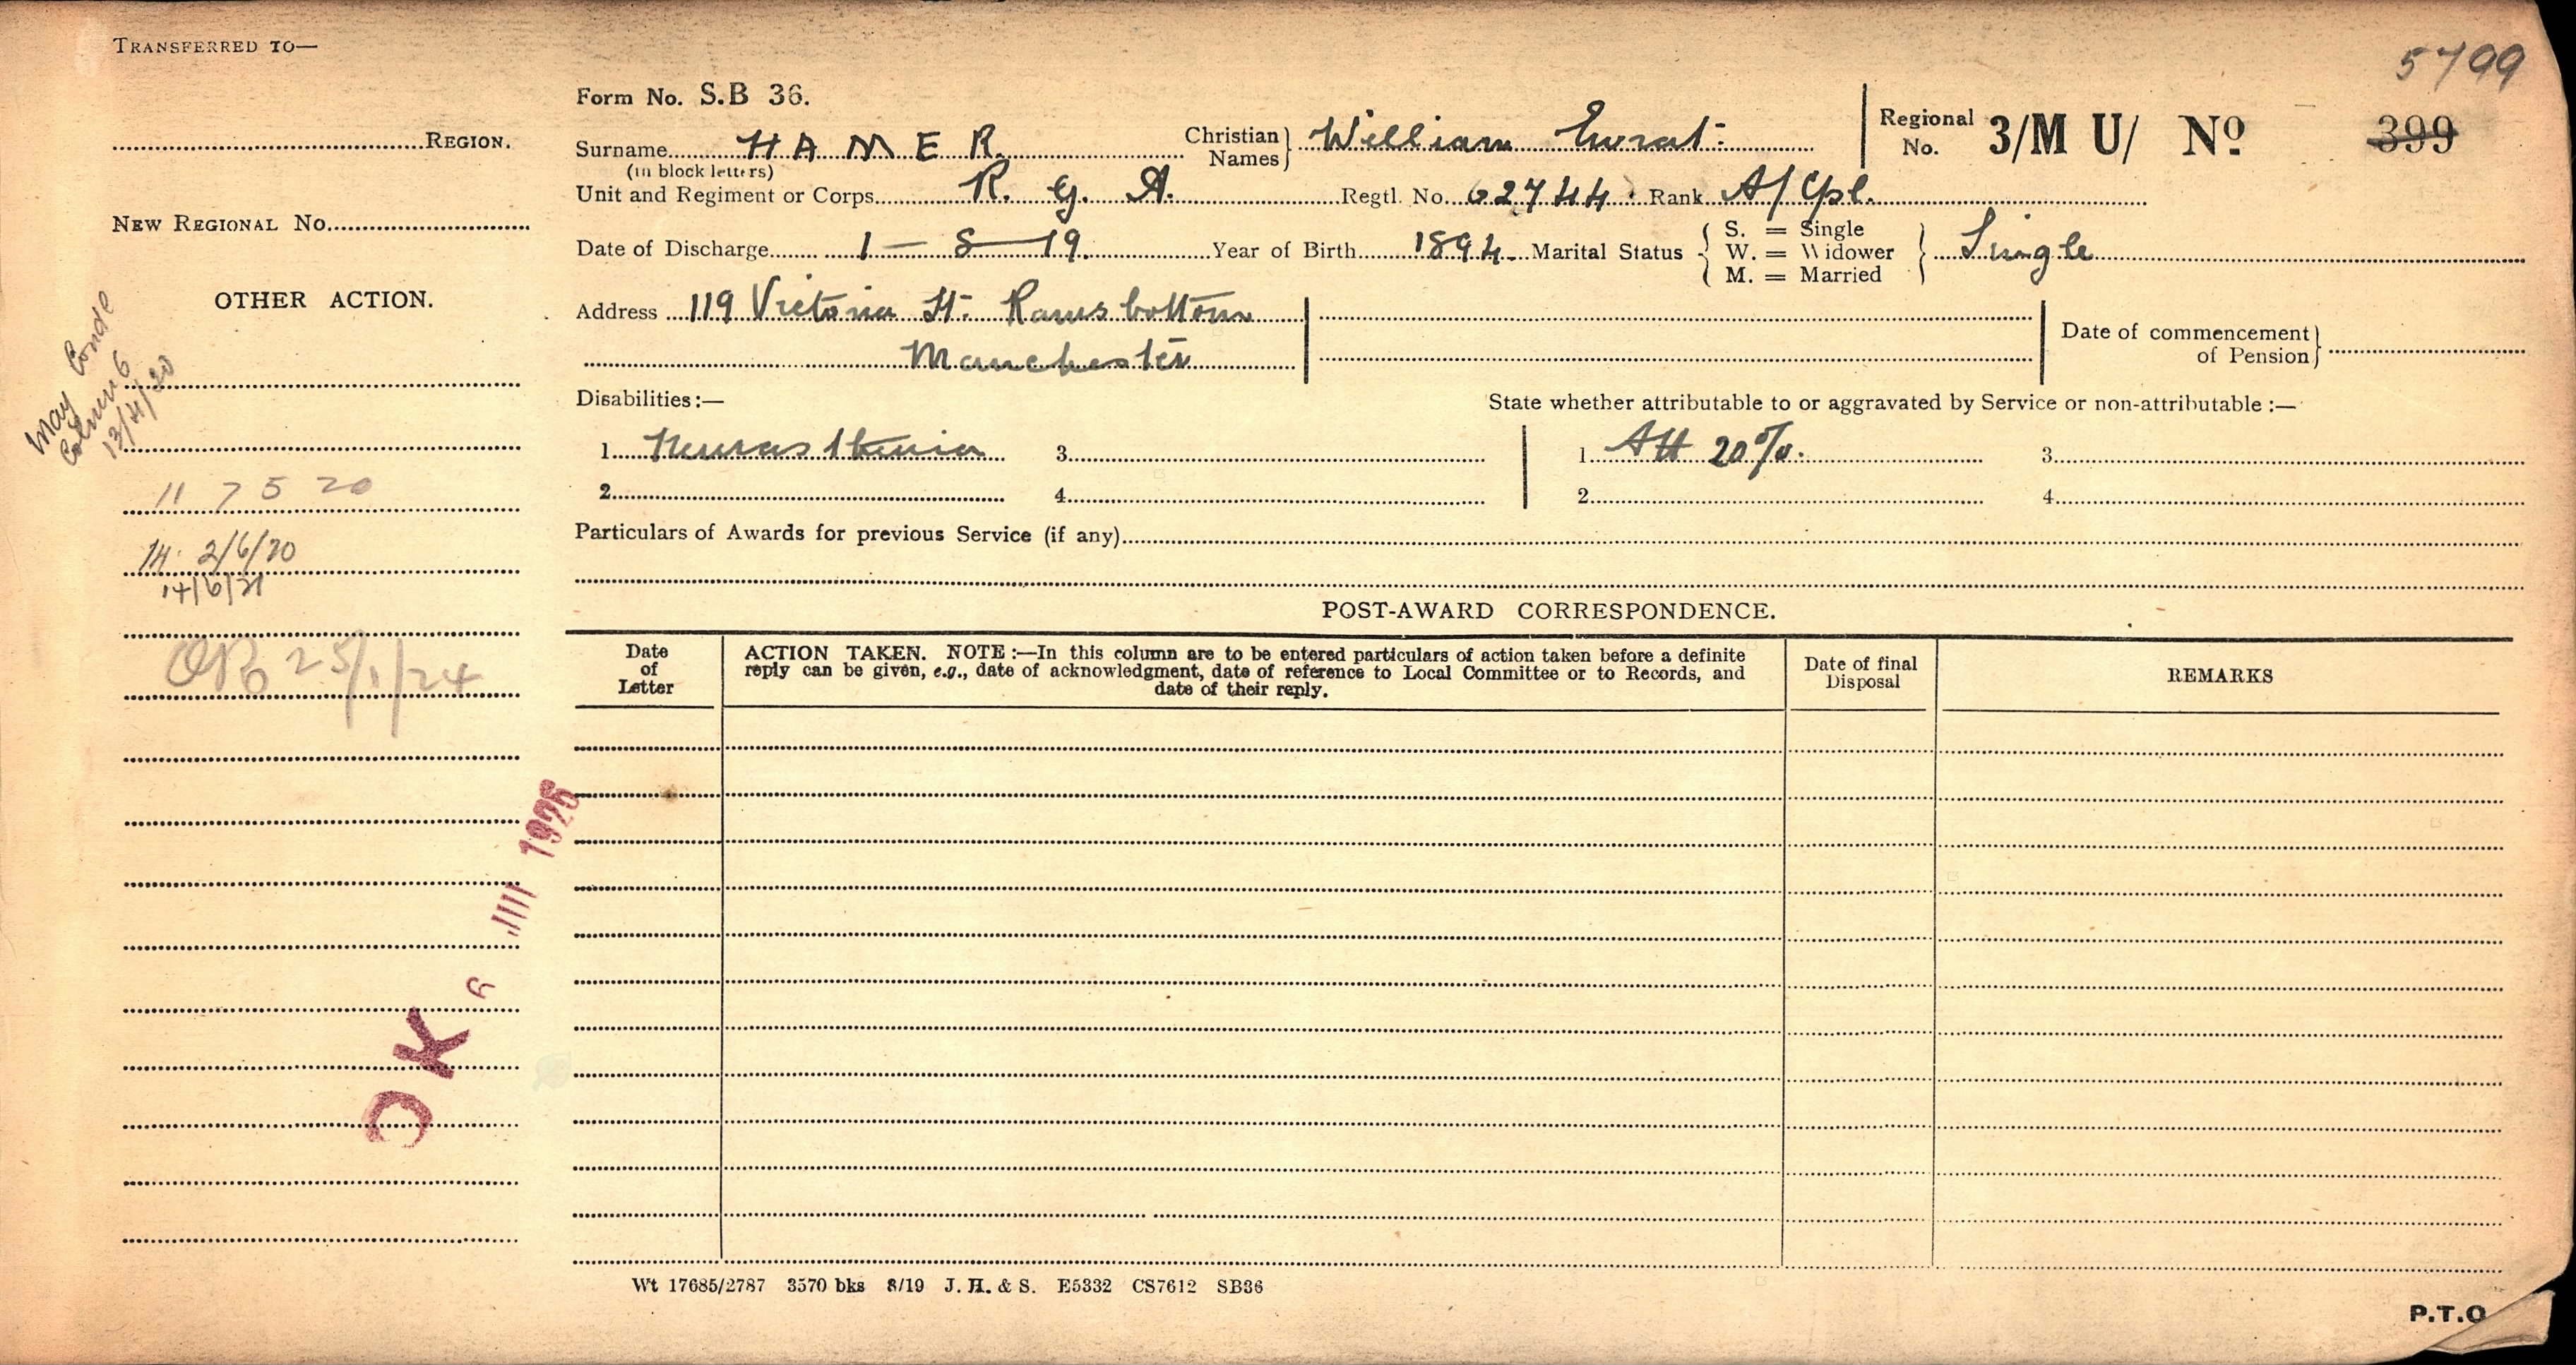 TRANSFERRED TO—
REGION.
NEW REGIONAL No.
OTHER ACTION.
May
13/4/20
11 7 5 20
14. 2/6/20
14/6/21
25/1/24
JUL 1926
OK
5799
Form No. S.B 36.
Surname HAMER
(in block letters)
Christian Names} William
Regional No. 3/M U/ No 399
Unit and Regiment or Corps R. G. A.
Regtl. No. 62744 Rank A/Cpl.
Date of Discharge 1 — 8 — 19. Year of Birth 1894 Marital Status { S. = Single W. = Widower M. = Married } Single
Address 119 Victoria St. Ramsbottom
Manchester
Date of commencement of Pension}
Disabilities:—
State whether attributable to or aggravated by Service or non-attributable :—
1. Neurasthenia 3.
1. Att 20%. 3.
2. 4.
2. 4.
Particulars of Awards for previous Service (if any)
POST-AWARD CORRESPONDENCE.
Date of Letter
ACTION TAKEN. NOTE :—In this column are to be entered particulars of action taken before a definite
reply can be given, e.g., date of acknowledgment, date of reference to Local Committee or to Records, and
date of their reply.
Date of final Disposal
REMARKS
Wt 17685/2787 3570 bks 8/19 J. H. & S. E5332 CS7612 SB36
P.T.O